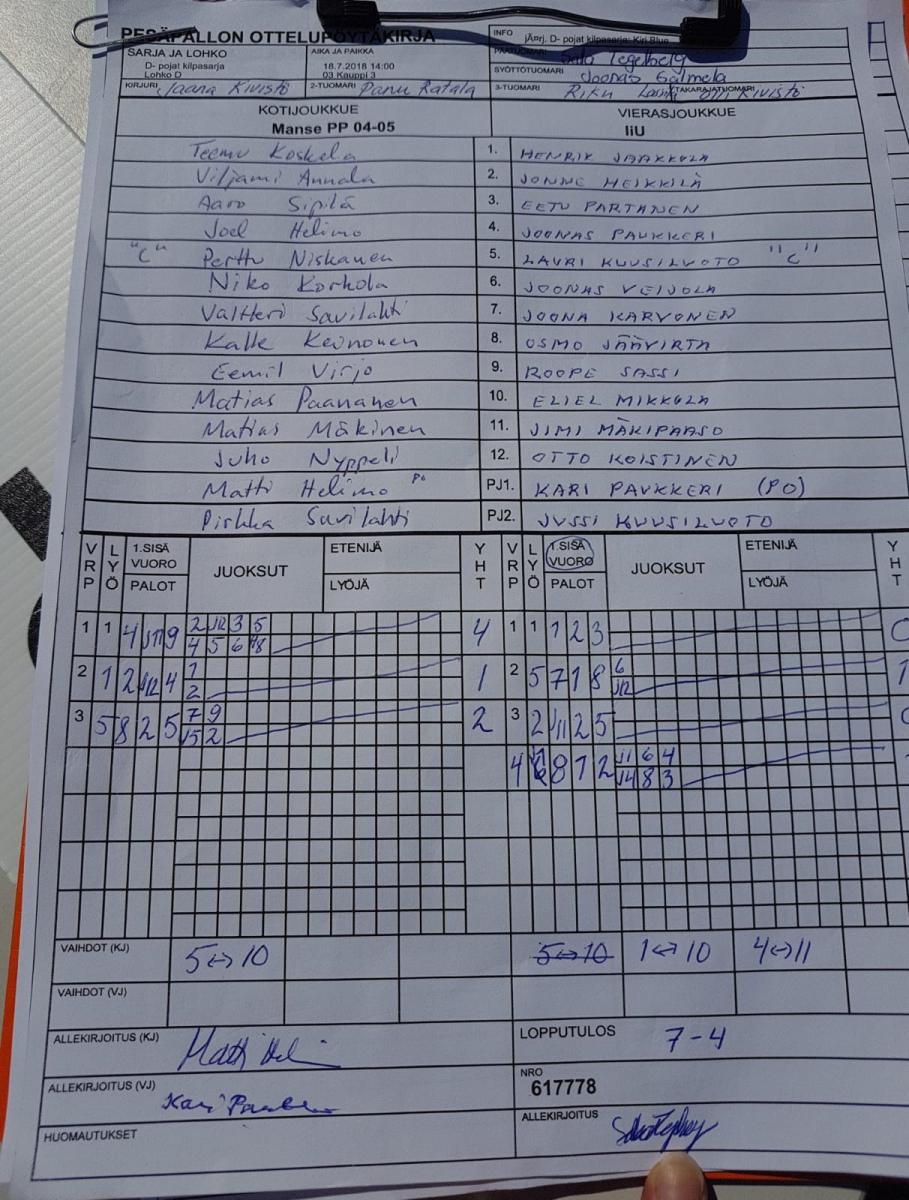 PESÄPALLON OTTELUPÖYTÄKIRJA
INFO jÄ¤rj. D- pojat kilpasarja: Kiri Blue
SARJA JA LOHKO AIKA JA PAIKKA PÄÄTUOMARI
D- pojat kilpasarja 18.7.2018 14:00 SYÖTTÖTUOMARI Joonas Salmela
Lohko D 03 Kauppi 3
KIRJURI Jaana Kivistö 2-TUOMARI Panu Ratala 3-TUOMARI Riku TAKARAJATUOMARI Olli Kivistö
KOTIJOUKKUE VIERASJOUKKUE
Manse PP 04-05 IiU
Teemu Koskela 1. HENRIK JAAKKOLA
Viljami Annala 2. JONNE HEIKKILÄ
Aaro Sipilä 3. EETU PARTANEN
Joel Helimo 4. JOONAS PAUKKERI
"C" Perttu Niskanen 5. LAURI KUUSILUOTO "C"
Niko Korhola 6. JOONAS VEIJOLA
Valtteri Savilahti 7. JOONA KARVONEN
Kalle Keinonen 8. OSMO JÄÄVIRTA
Eemil Virjo 9. ROOPE SASSI
Matias Paananen 10. ELIEL MIKKOLA
Matias Mäkinen 11. JIMI MÄKIPAASO
Juho Nyppeli 12. OTTO KOISTINEN
Matti Helimo PJ1. KARI PAUKKERI (PO)
Pirkka Savilahti PJ2. JUSSI KUUSILUOTO
VRP LYÖ 1.SISÄ VUORO PALOT JUOKSUT ETENIJÄ LYÖJÄ YHT VRP LYÖ 1.SISÄ VUORO PALOT JUOKSUT ETENIJÄ LYÖJÄ YHT
1 1 4 J11 9 2 J12 3 5 4 1 1 1 2 3 0
4 5 6 8
2 1 2 J12 4 1 1 2 5 7 1 8 6 1
2 J12
3 5 8 2 5 7 9 2 3 2 J11 2 5
J5 2
4 6 8 7 2 J1 6 4
J4 8 3
VAIHDOT (KJ) 5↔10 5↔10 1↔10 4↔11
VAIHDOT (VJ)
ALLEKIRJOITUS (KJ) LOPPUTULOS 7-4
ALLEKIRJOITUS (VJ) NRO
617778
HUOMAUTUKSET ALLEKIRJOITUS